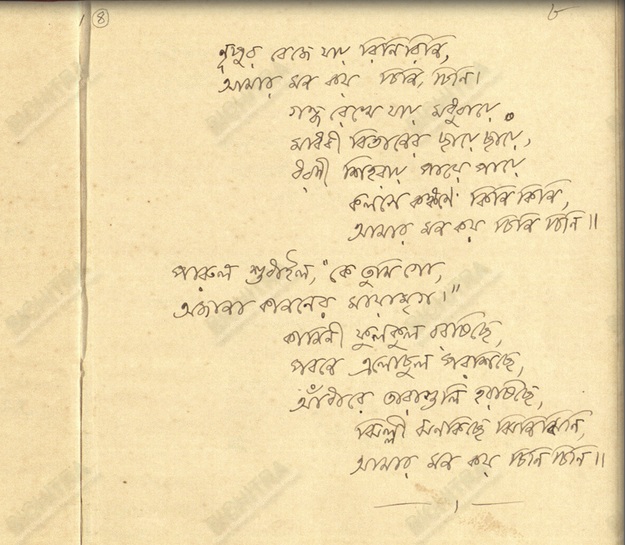 ৪ ৮
নূপুর বেজে যায় রিনিরিনি,
আমার মন কয় চিনি, চিনি।
গন্ধ রেখে যায় মধুবায়ে
মাধবী বিতানের ছায়ে ছায়ে,
ধরণী শিহরায় পায়ে পায়ে
কলসে কঙ্কণে কিনি কিনি,
আমার মন কয় চিনি চিনি॥
পারুল শুধাইল, "কে তুমি গো,
অজানা কাননের মায়ামৃগ।"
কামিনী ফুলকুল বরষিছে,
পবনে এলোচুল পরশিছে,
আঁধারে তারাগুলি হরষিছে,
ঝিল্লী ঝনকিছে ঝিনিঝিনি,
আমার মন কয় চিনি চিনি॥
BICHITRA